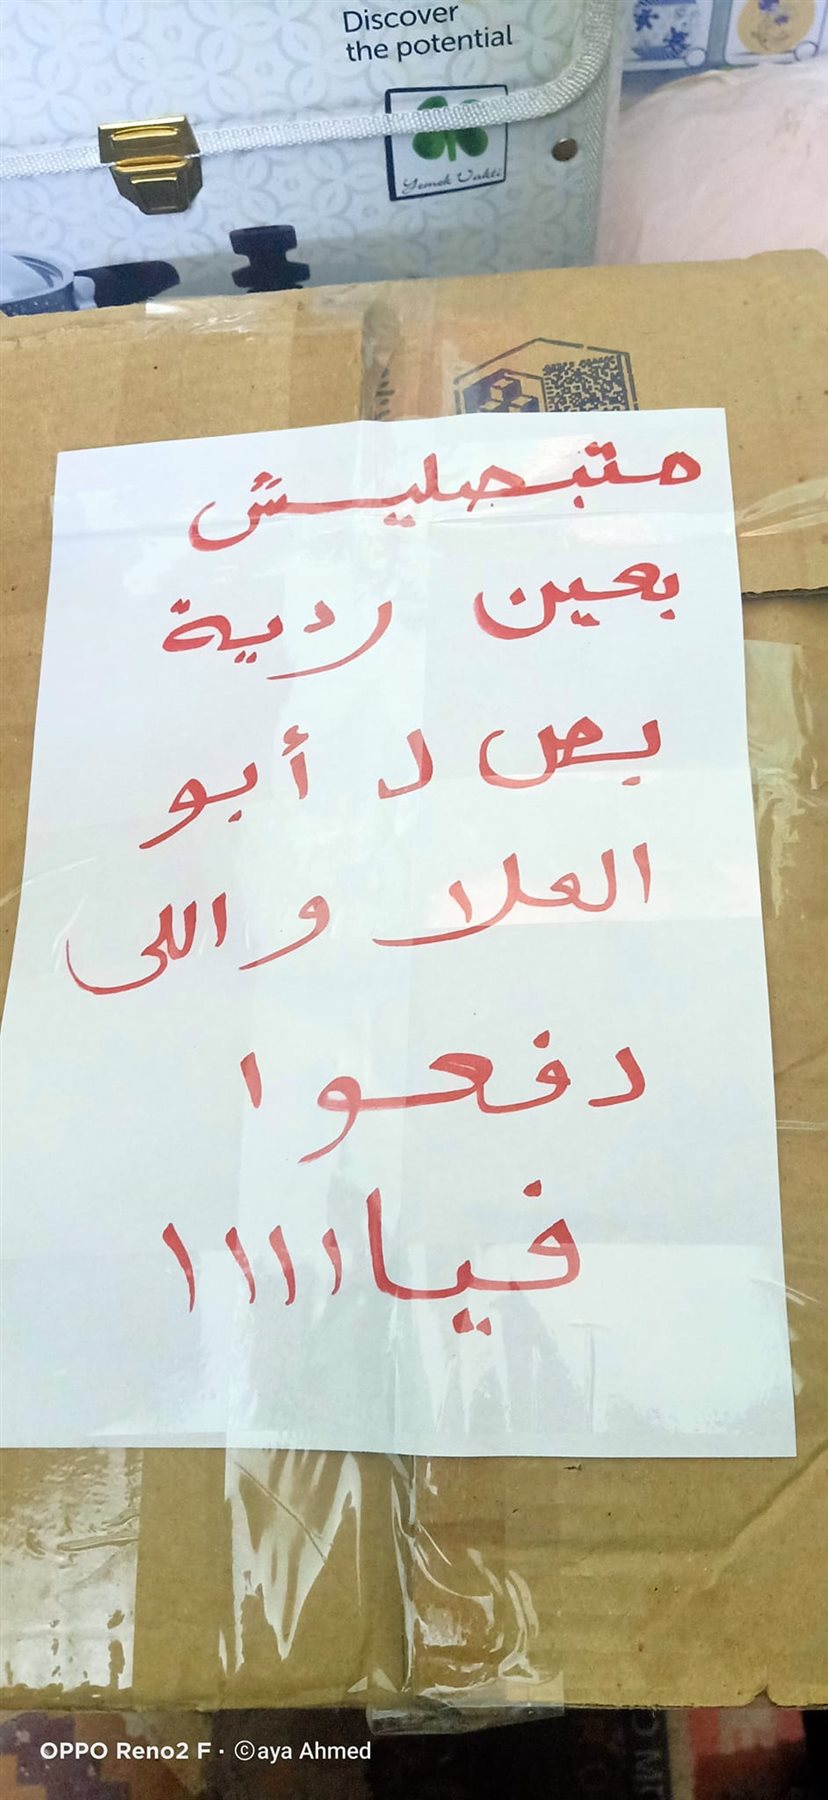 Discover
the potential
Yemek Vakti
متبصليش
بعين ردية
بص لـ أبو
العلا و اللى
دفعوا
فيااااا
OPPO Reno2 F · ©aya Ahmed